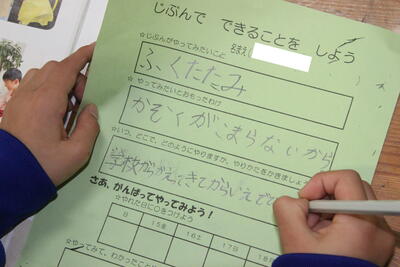 じぶんで できることを しよう
☆じぶんがやってみたいこと なまえ
ふくたたみ
☆やってみたいとおもったわけ
かぞくがこまらないから
☆いつ、どこで、どのようにやりますか。やりかたをかきましょう
学校からかえってきてからいえで
さあ、がんばってやってみよう！
☆やれた日に○をつけよう
日 15金 16土 17日 18
☆やってみて、わかったこ